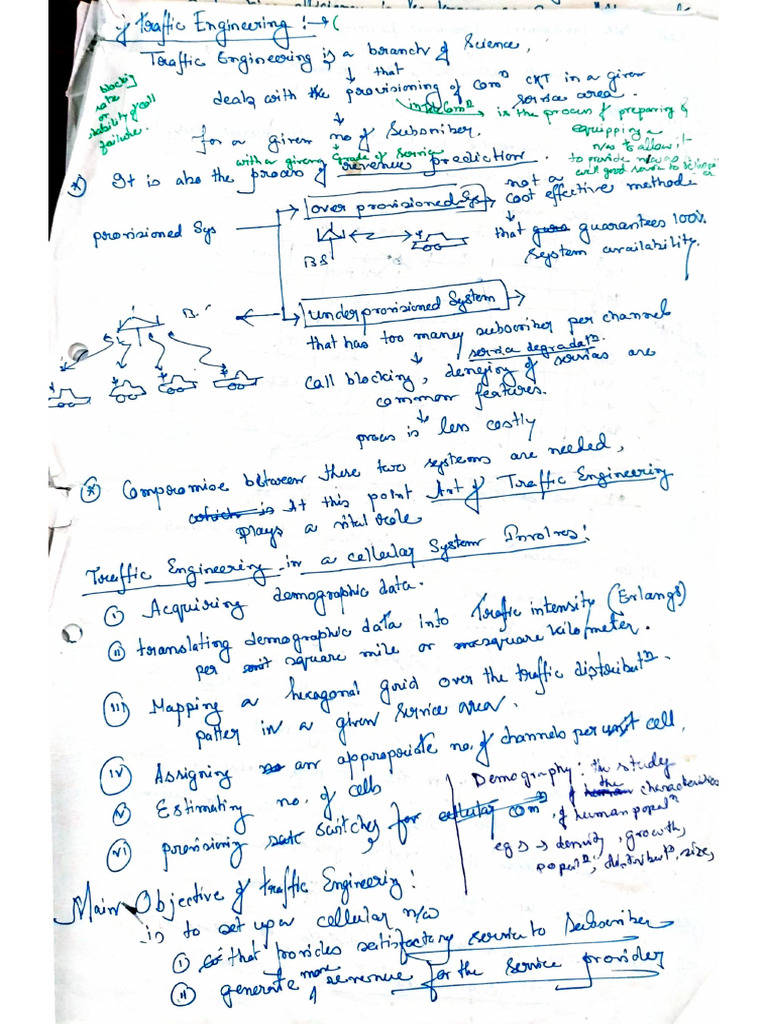 Traffic Engineering :→
Traffic Engineering is a branch of Science,
that
deals with the provisioning of Comⁿ CKT in a given
service area.
blocking
rate
or
failure.
in Comⁿ
is the process of preparing &
equipping a
n/w to allow it
to provide
for a given no of Subsriber.
with a giveng Grade of Service
* It is also the process of revenue prediction.
provisioned Sys
over provisioned Sys
not a
cost effective methode
that guarantees 100%
system availability.
BS
B.
underprovisioned System
that has too maney subscriber per channels
service degradatⁿ.
call blocking, denying of services are
common features.
process is less costly
* Compromise between these two systems are needed,
which is At this point Art of Traffic Engineering
plays a vital role
Traffic Engineering in a cellular System Involves:
i Acquiring demographic data.
ii translating demographic data into Traffic intensity (Erlangs)
per unit square mile or square kilometer.
iii Mapping a hexagonal grid over the traffic distributⁿ.
patter in a given service area.
iv Assigning an appropriate no. of channels per unit cell.
v Estimating no. of cells
vi provisining switches for cellular comⁿ.
Demography: the study
of human the characteristics
of human populⁿ
egs → density, growth,
populⁿ, distributⁿ, size,
Main Objective of traffic Engineering:
is to set up a cellular n/w
i that provides satisfactory service to Subscriber
ii generate more revenue for the service provider